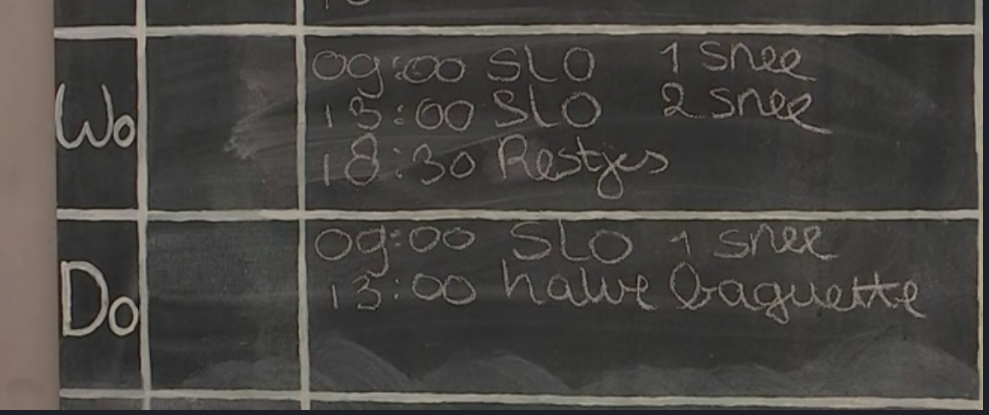 Wo
09:00 SLO 1 snee
13:00 SLO 2 snee
18:30 Restjes
Do
09:00 SLO 1 snee
13:00 halve baguette